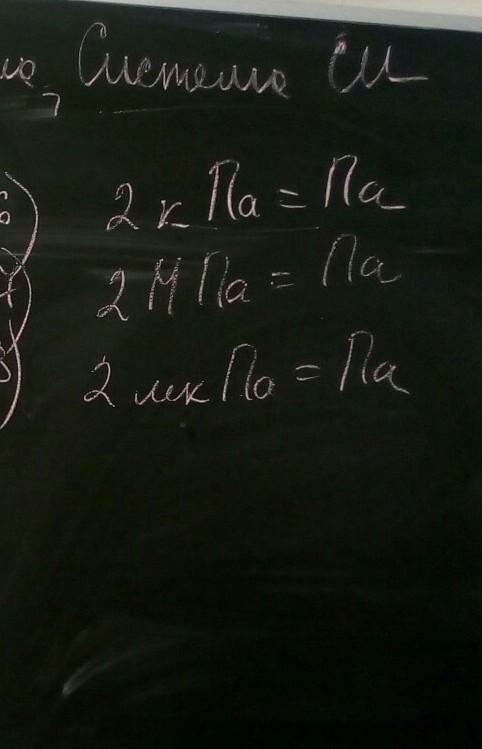 Система СИ
6) 2 к Па = Па
7) 2 М Па = Па
8) 2 мк Па = Па